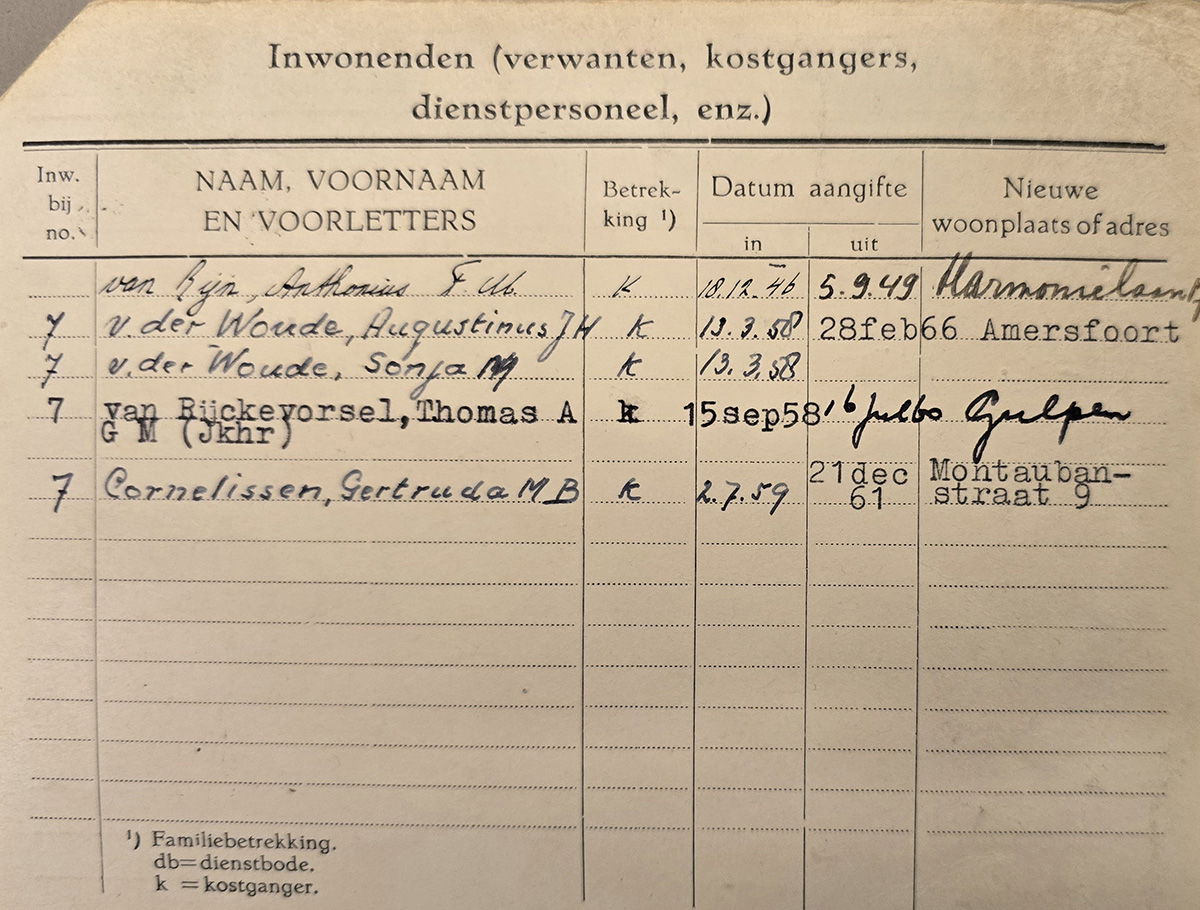 Inwonenden (verwanten, kostgangers,
dienstpersoneel, enz.)
Inw. bij no. NAAM, VOORNAAM EN VOORLETTERS Betrek-king ¹) Datum aangifte in uit Nieuwe woonplaats of adres
van Rijn, Anthonius F. M. K 18.12.46 5.9.49
7 v.der Woude, Augustinus J H K 13.3.58 28feb66 Amersfoort
7 v.der Woude, Sonja M K 13.3.58
7 van Rijckevorsel,Thomas A k 15sep58 16 jul 60 Gulpen
G M (Jkhr)
21dec Montauban-
7 Cornelissen, Gertruda M B K 2.7.59 61 straat 9
¹) Familiebetrekking.
db=dienstbode.
k =kostganger.